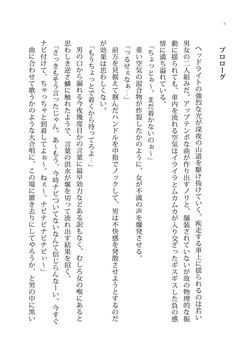 プロローグ
ヘッドライトの強烈な光が深夜の山道を駆け抜けていく。疾走する車上に揺られるのは若い
男女の二人組みだ。アップテンポな曲が作り出すノリと、舗装されていないが故の物理的な振
動に揺られても、車内を流れる空気はイライラとムカムカが入り交ざったギスギスした負の感
情に満ち溢れている。
「ちょっとぉー。まだ着かないのぉー」
「うるせぇなあ」
混ぜるな危険の混合気体が炸裂したかのように、女が不満の声を爆発させる。
前方を見据えて掴んだハンドルを中指でノックして、男は不快感を発散させようとするのだ
が効果は思わしくない。
「もうちょっとで着くから待ってろよ」
男の口から漏れる今夜幾度目かの言葉に最早効果などあるわけもなく、むしろ女の喉にあると
思わしき逆さ鱗に触れたようで、言葉の洪水が堰を切って流れ出す結果を招く。
「さっきもそう言ったじゃん。あーもう。今時ナビついてないなんて信じらんなーい。今すぐ
ナビ付けて、ちゃっちゃと到着してよぉー。ねぇー。ナビナビナビナビぃー」
曲に合わせて歌うかのような大合唱に、この場に置き去りにしてやろうか、と男の中に黒い